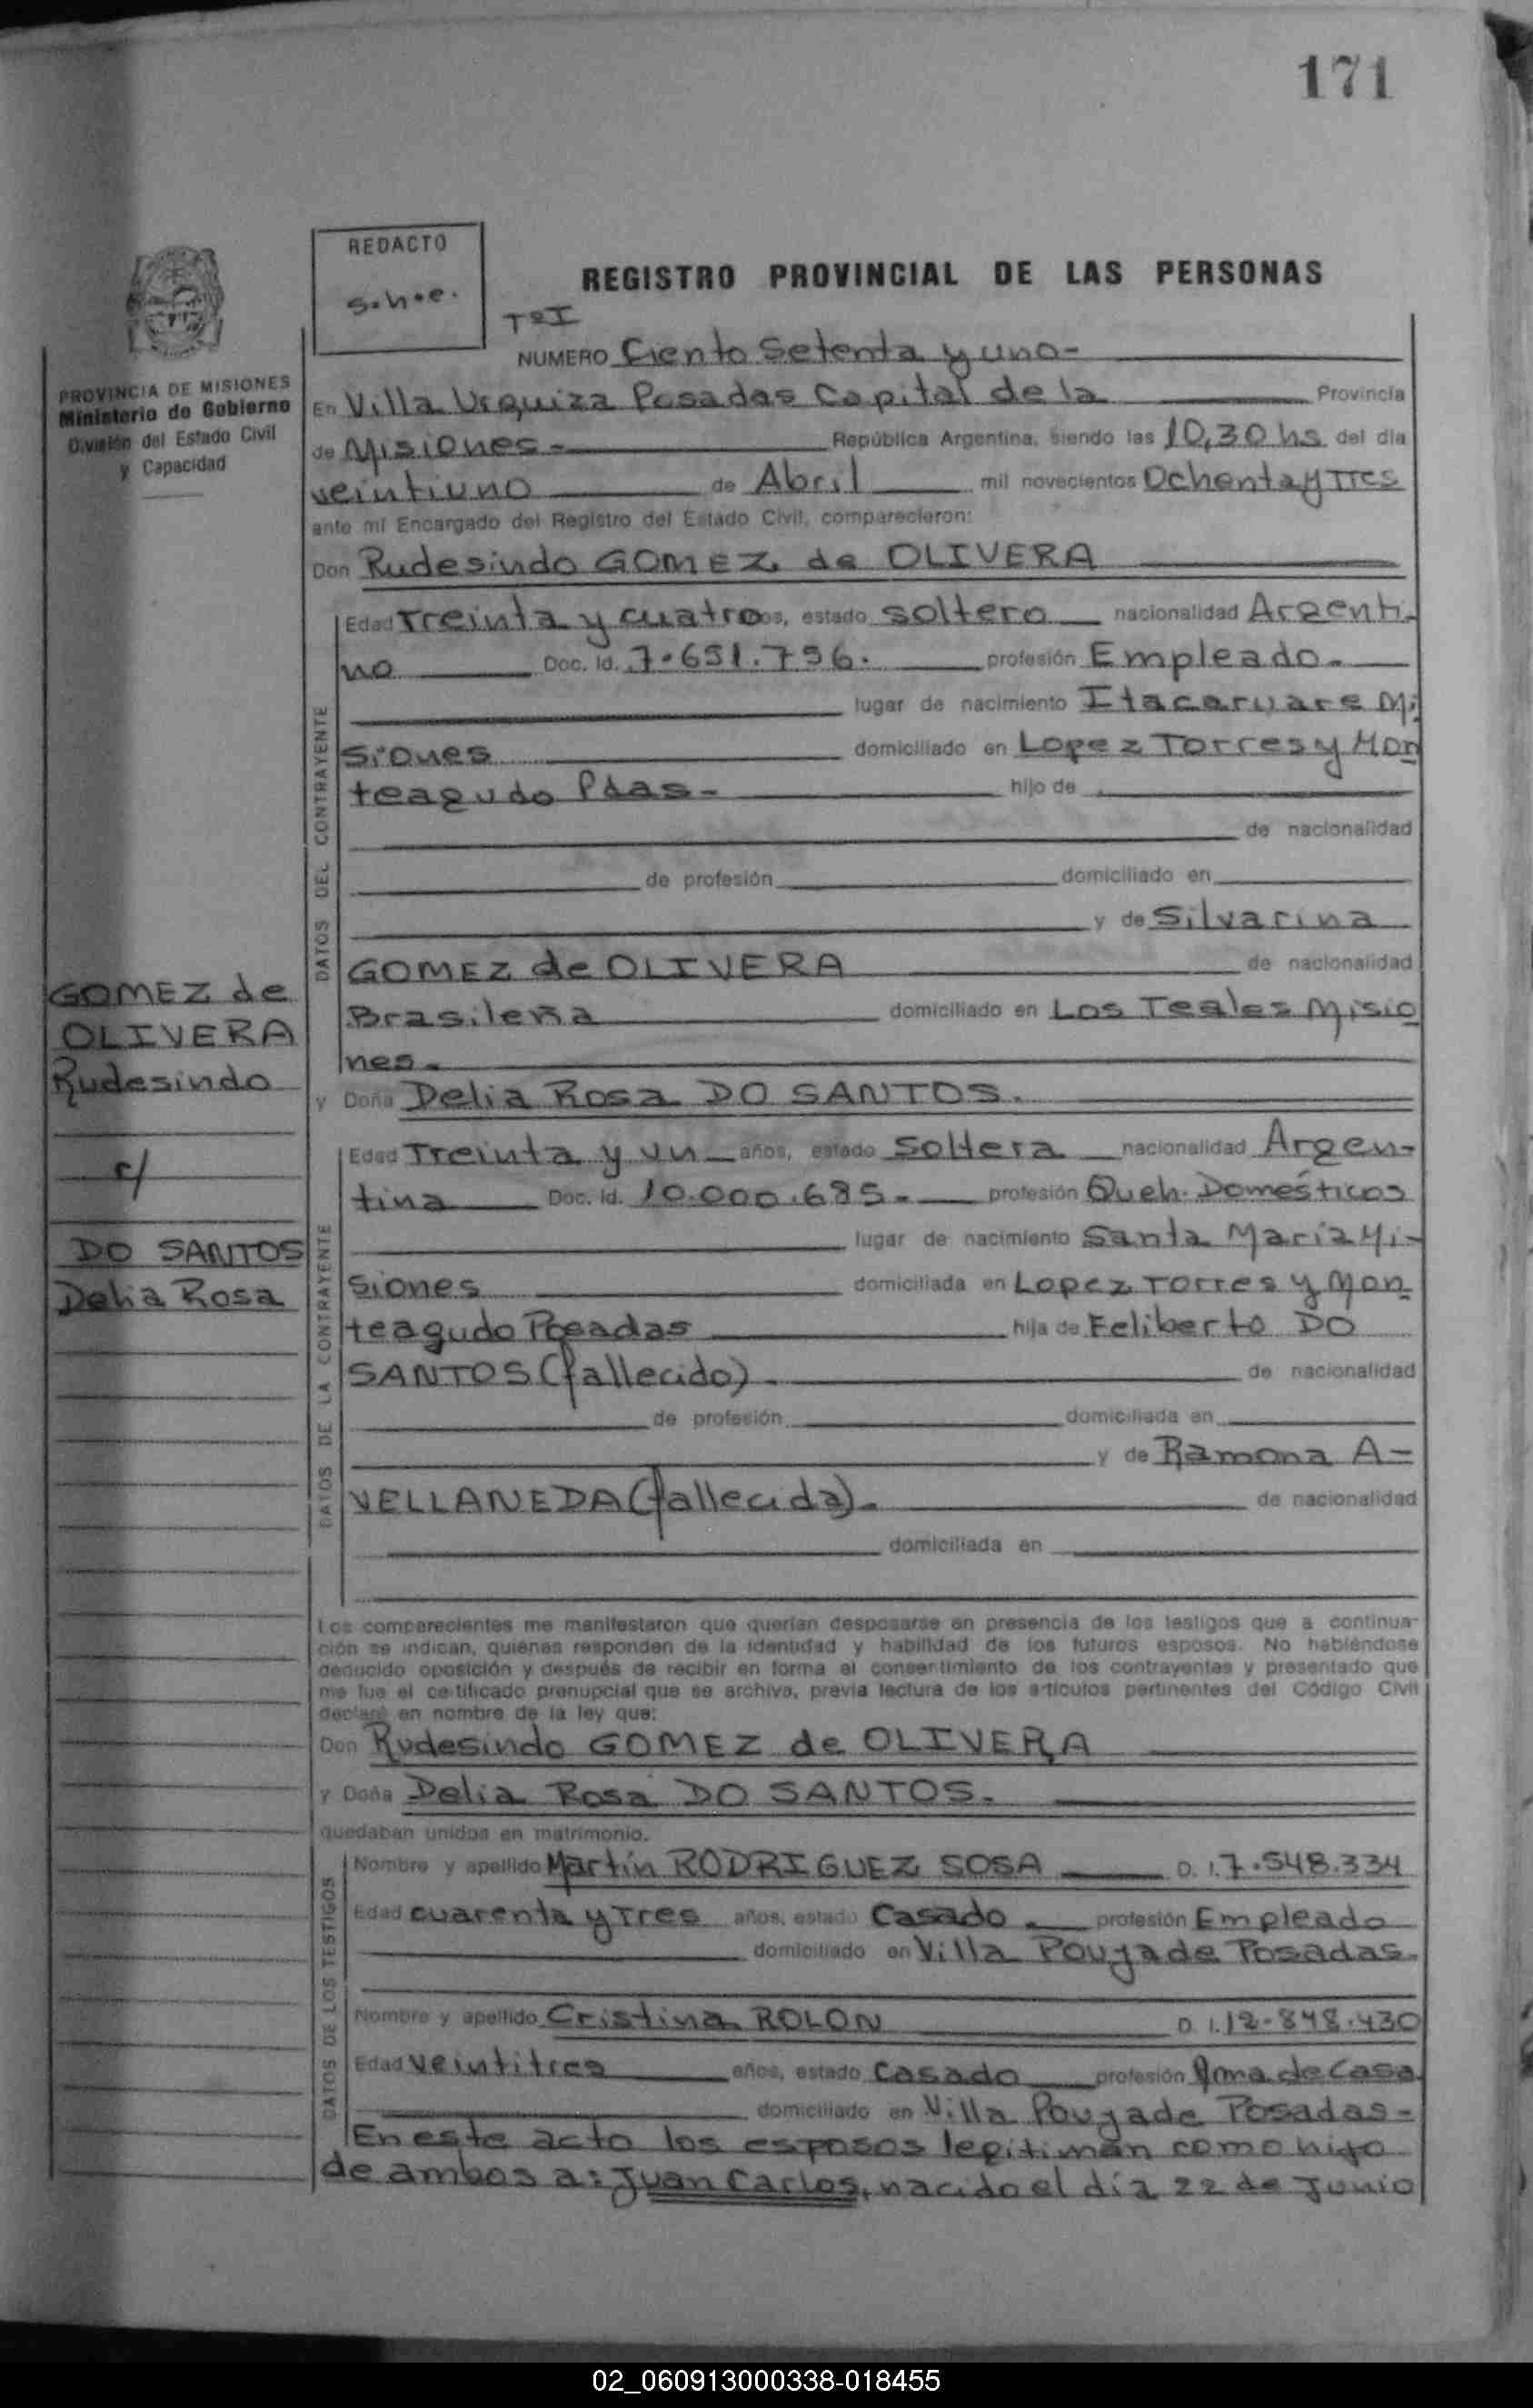 171
REDACTO
s.h.e.
REGISTRO PROVINCIAL DE LAS PERSONAS
TºI
NUMERO Ciento Setenta y uno-
PROVINCIA DE MISIONES
Ministerio de Gobierno
División del Estado Civil
y Capacidad
En Villa Urquiza Posadas Capital de la Provincia
de Misiones- República Argentina, siendo las 10,30 hs del día
veintiuno de Abril mil novecientos Ochenta y Tres
ante mí Encargado del Registro del Estado Civil, comparecieron:
Don Rudesindo GOMEZ de OLIVERA
DATOS DEL CONTRAYENTE
Edad Treinta y cuatro años, estado soltero nacionalidad Argenti-
no Doc. Id. 7.651.796. profesión Empleado.
lugar de nacimiento Itacaruare Mi
siones domiciliado en Lopez Torres y Mon
teagudo Pdas- hijo de
de nacionalidad
de profesión domiciliado en
y de Silvarina
GOMEZ de OLIVERA de nacionalidad
Brasileña domiciliado en Los Teales Misio
nes.
GOMEZ de
OLIVERA
Rudesindo
c/
DO SANTOS
Delia Rosa
y Doña Delia Rosa DO SANTOS.
DATOS DE LA CONTRAYENTE
Edad Treinta y un años, estado Soltera nacionalidad Argen-
tina Doc. Id. 10.000.685.- profesión Queh. Domésticos
lugar de nacimiento Santa María Mi-
siones domiciliada en Lopez Torres y Mon
teagudo Posadas hija de Feliberto DO
SANTOS (fallecido). de nacionalidad
de profesión domiciliada en
y de Ramona A-
VELLANEDA (fallecida). de nacionalidad
domiciliada en
Los comparecientes me manifestaron que querían desposarse en presencia de los testigos que a continua-
ción se indican, quienes responden de la identidad y habilidad de los futuros esposos. No habiéndose
deducido oposición y después de recibir en forma el consentimiento de los contrayentes y presentado que
me fue el certificado prenupcial que se archiva, previa lectura de los artículos pertinentes del Código Civil
declaré en nombre de la ley que:
Don Rudesindo GOMEZ de OLIVERA
y Doña Delia Rosa DO SANTOS.
quedaban unidos en matrimonio.
DATOS DE LOS TESTIGOS
Nombre y apellido Martín RODRIGUEZ SOSA D. I. 7.548.334
Edad cuarenta y Tres años, estado Casado. profesión Empleado
domiciliado en Villa Poujade Posadas.
Nombre y apellido Cristina ROLON D. I. 12.848.430
Edad veintitres años, estado Casado profesión Ama de Casa
domiciliado en Villa Poujade Posadas-
En este acto los esposos legitiman como hijo
de ambos a: Juan Carlos, nacido el día 22 de Junio
02_060913000338-018455